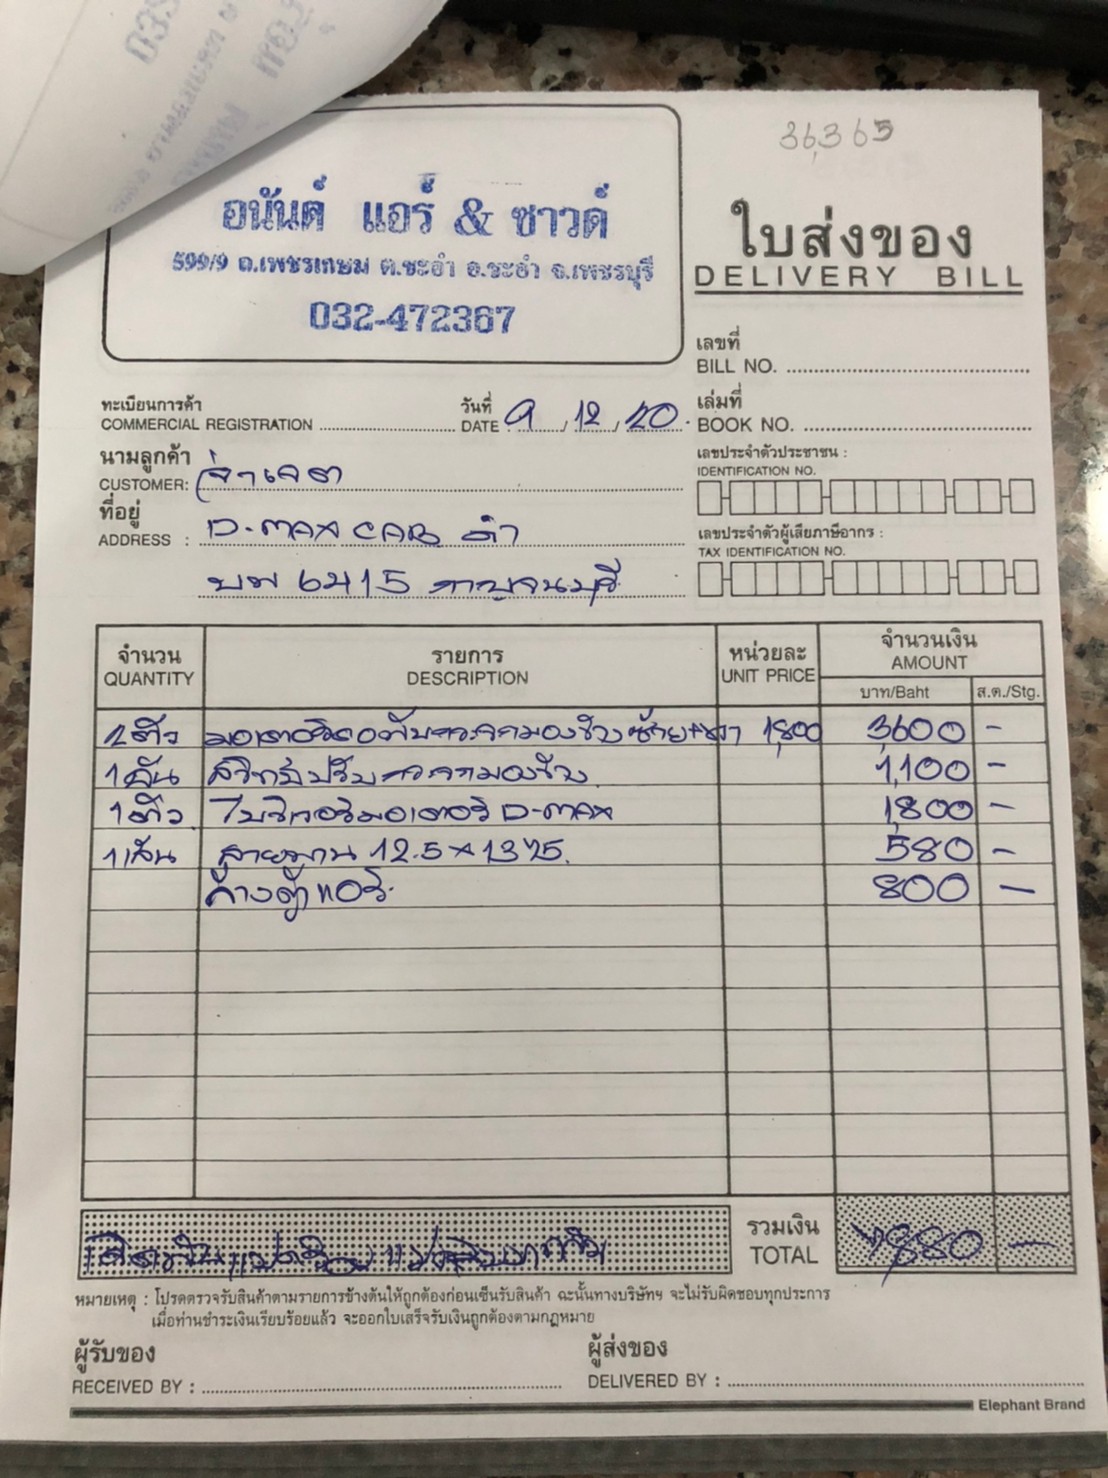 36,365
อนันต์ แอร์ & ซาวด์
599/9 ถ.เพชรเกษม ต.ชะอำ อ.ชะอำ จ.เพชรบุรี
032-472367
ใบส่งของ
DELIVERY BILL
เลขที่
BILL NO.
ทะเบียนการค้า
COMMERCIAL REGISTRATION
วันที่
DATE 9 / 12 / 20
เล่มที่
BOOK NO.
นามลูกค้า
CUSTOMER: จ่าเจต
เลขประจำตัวประชาชน :
IDENTIFICATION NO.
ที่อยู่
ADDRESS : D-MAX CAB ดำ
บพ 6415 กาญจนบุรี
เลขประจำตัวผู้เสียภาษีอากร :
TAX IDENTIFICATION NO.
จำนวน รายการ หน่วยละ จำนวนเงิน
QUANTITY DESCRIPTION UNIT PRICE AMOUNT
บาท/Baht ส.ต./Stg.
2 ตัว มอเตอร์ กระจกมองข้างซ้าย+ขวา 1800 3,600 -
1 อัน สวิทช์ปรับกระจกมองข้าง 1,100 -
1 ตัว มอเตอร์ D-MAX 1,800 -
1 เส้น สายพาน 12.5 x 1375 580 -
ล้างตู้แอร์ 800 -
เจ็ดพันแปดร้อยแปดสิบบาทถ้วน
รวมเงิน
TOTAL 7,880 -
หมายเหตุ : โปรดตรวจรับสินค้าตามรายการข้างต้นให้ถูกต้องก่อนเซ็นรับสินค้า ฉะนั้นทางบริษัทฯ จะไม่รับผิดชอบทุกประการ
เมื่อท่านชำระเงินเรียบร้อยแล้ว จะออกใบเสร็จรับเงินถูกต้องตามกฎหมาย
ผู้รับของ
RECEIVED BY :
ผู้ส่งของ
DELIVERED BY :
Elephant Brand